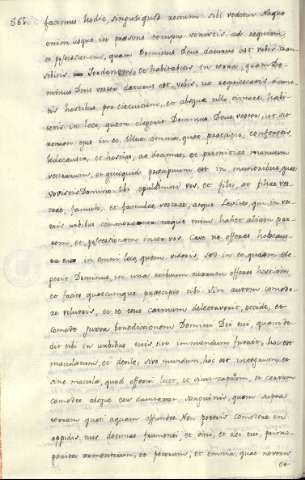 566.
facimus hodie, singuli quod rectum sibi videtur. Neque
enim usque in praesens tempus venistis ad requiem,
et possessionem, quam Dominus Deus daturus est vobis. Tran
sibitis Jordanem, et habitabitis in terra, quam Do
minus Deus vester daturus est vobis, ut requiescatis a cunc
tis hostibus per circuitum, et absque ullo timore habi
tetis in loco, quem elegerit Dominus Deus vester, ut sit
nomen ejus in eo. Illuc omnia, quae praecipio, conferetis
holocausta, et hostias, ac decimas, et primitias manuum
vestrarum, et quidquid praecipuum est in muneribus, quae
vovistis Domino. Ibi epulabimini vos, et filii, ac filiae ves
trae, famuli, et famulae vestrae, atque Levites, qui in ves
tris urbibus commoratur, neque enim habet aliam par
tem, et possessionem inter vos. Cave ne offeras holocaus
ta tua in omni loco, quem videris, sed in eo, quem ele
gerit Dominus, in una tribuum tuarum offeres hostias,
et facies quaecumque praecipio tibi. Sin autem comede
re volueris, et te esus carnium delectaverit, occide, et
comede juxta benedictionem Domini Dei tui, quam de
dit tibi in urbibus tuis, sive immundum fuerit, hoc est
maculatum, et debile, sive mundum, hoc est integrum, et
sine macula, quod offerri licet, et
comedes absque esu sanguinis, quem super
terram quasi aquam effundes. Non poteris comedere in
oppidis tuis decimas frumenti, et vini, et olei tui, primo
genita armentorum, et pecorum, et omnia, quae voveris